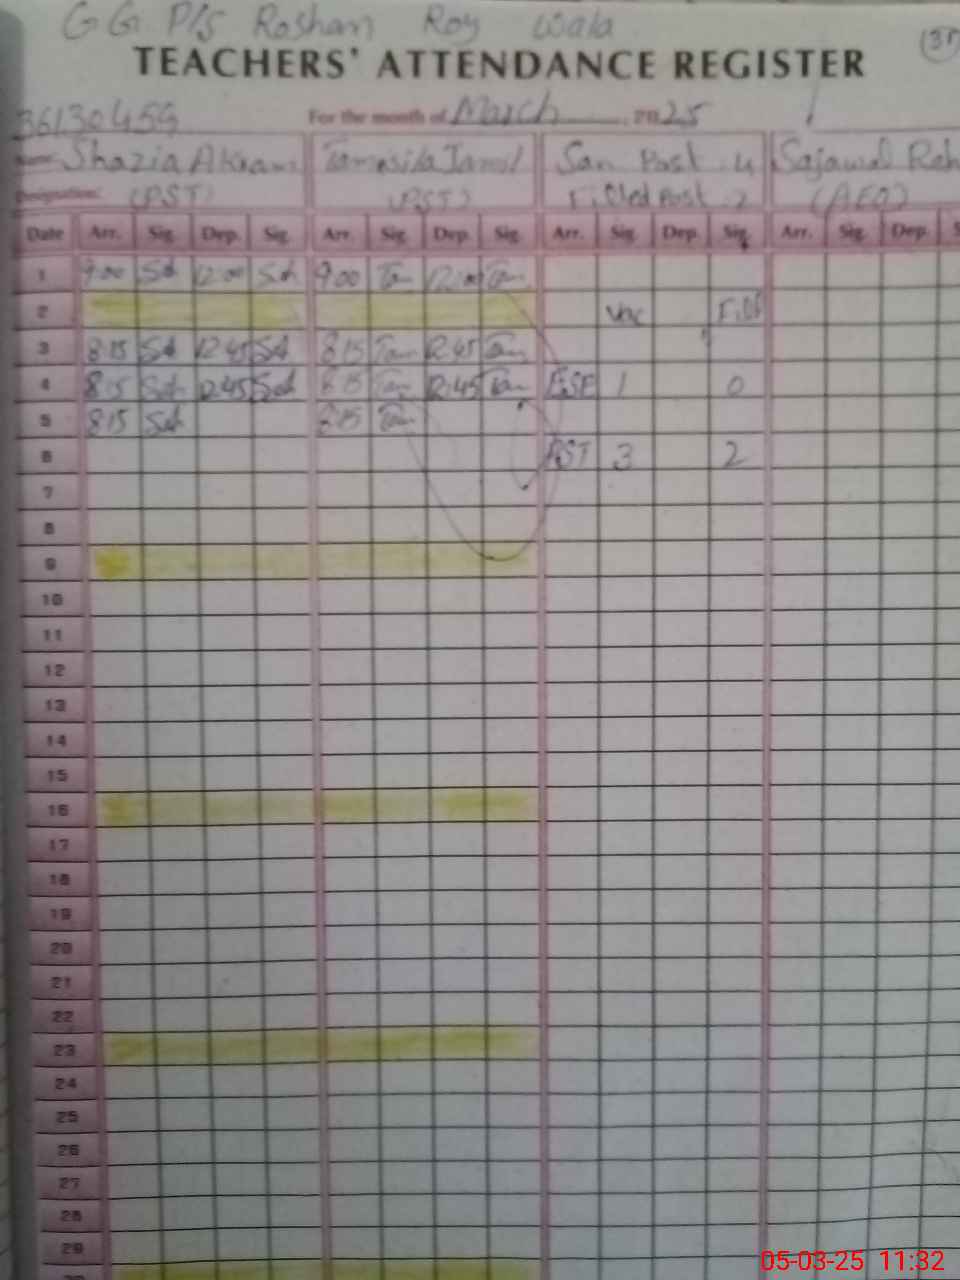 G G P/S Roshan Roy Wala
(31
TEACHERS' ATTENDANCE REGISTER
36130459 For the month of March 2025
Name: Shazia Akram Tamsila Jamil San Post 4 Sajawal Reh
Designation: (PST) (PST) Filled Post 2 (AEO)
Date Arr. Sig. Dep. Sig. Arr. Sig. Dep. Sig. Arr. Sig. Dep. Sig. Arr. Sig. Dep. S
1 9:00 Sh 12:00 Sh 9:00 Tam 12:00 Tam
2 Vac Fill
3 8:15 Sh 12:45 Sh 8:15 Tam 12:45 Tam
4 8:15 Sh 12:45 Sh 8:15 Tam 12:45 Tam ESE 1 0
5 8:15 Sh 8:15 Tam
6 PST 3 2
7
8
9
10
11
12
13
14
15
16
17
18
19
20
21
22
23
24
25
26
27
28
29
30
05-03-25 11:32